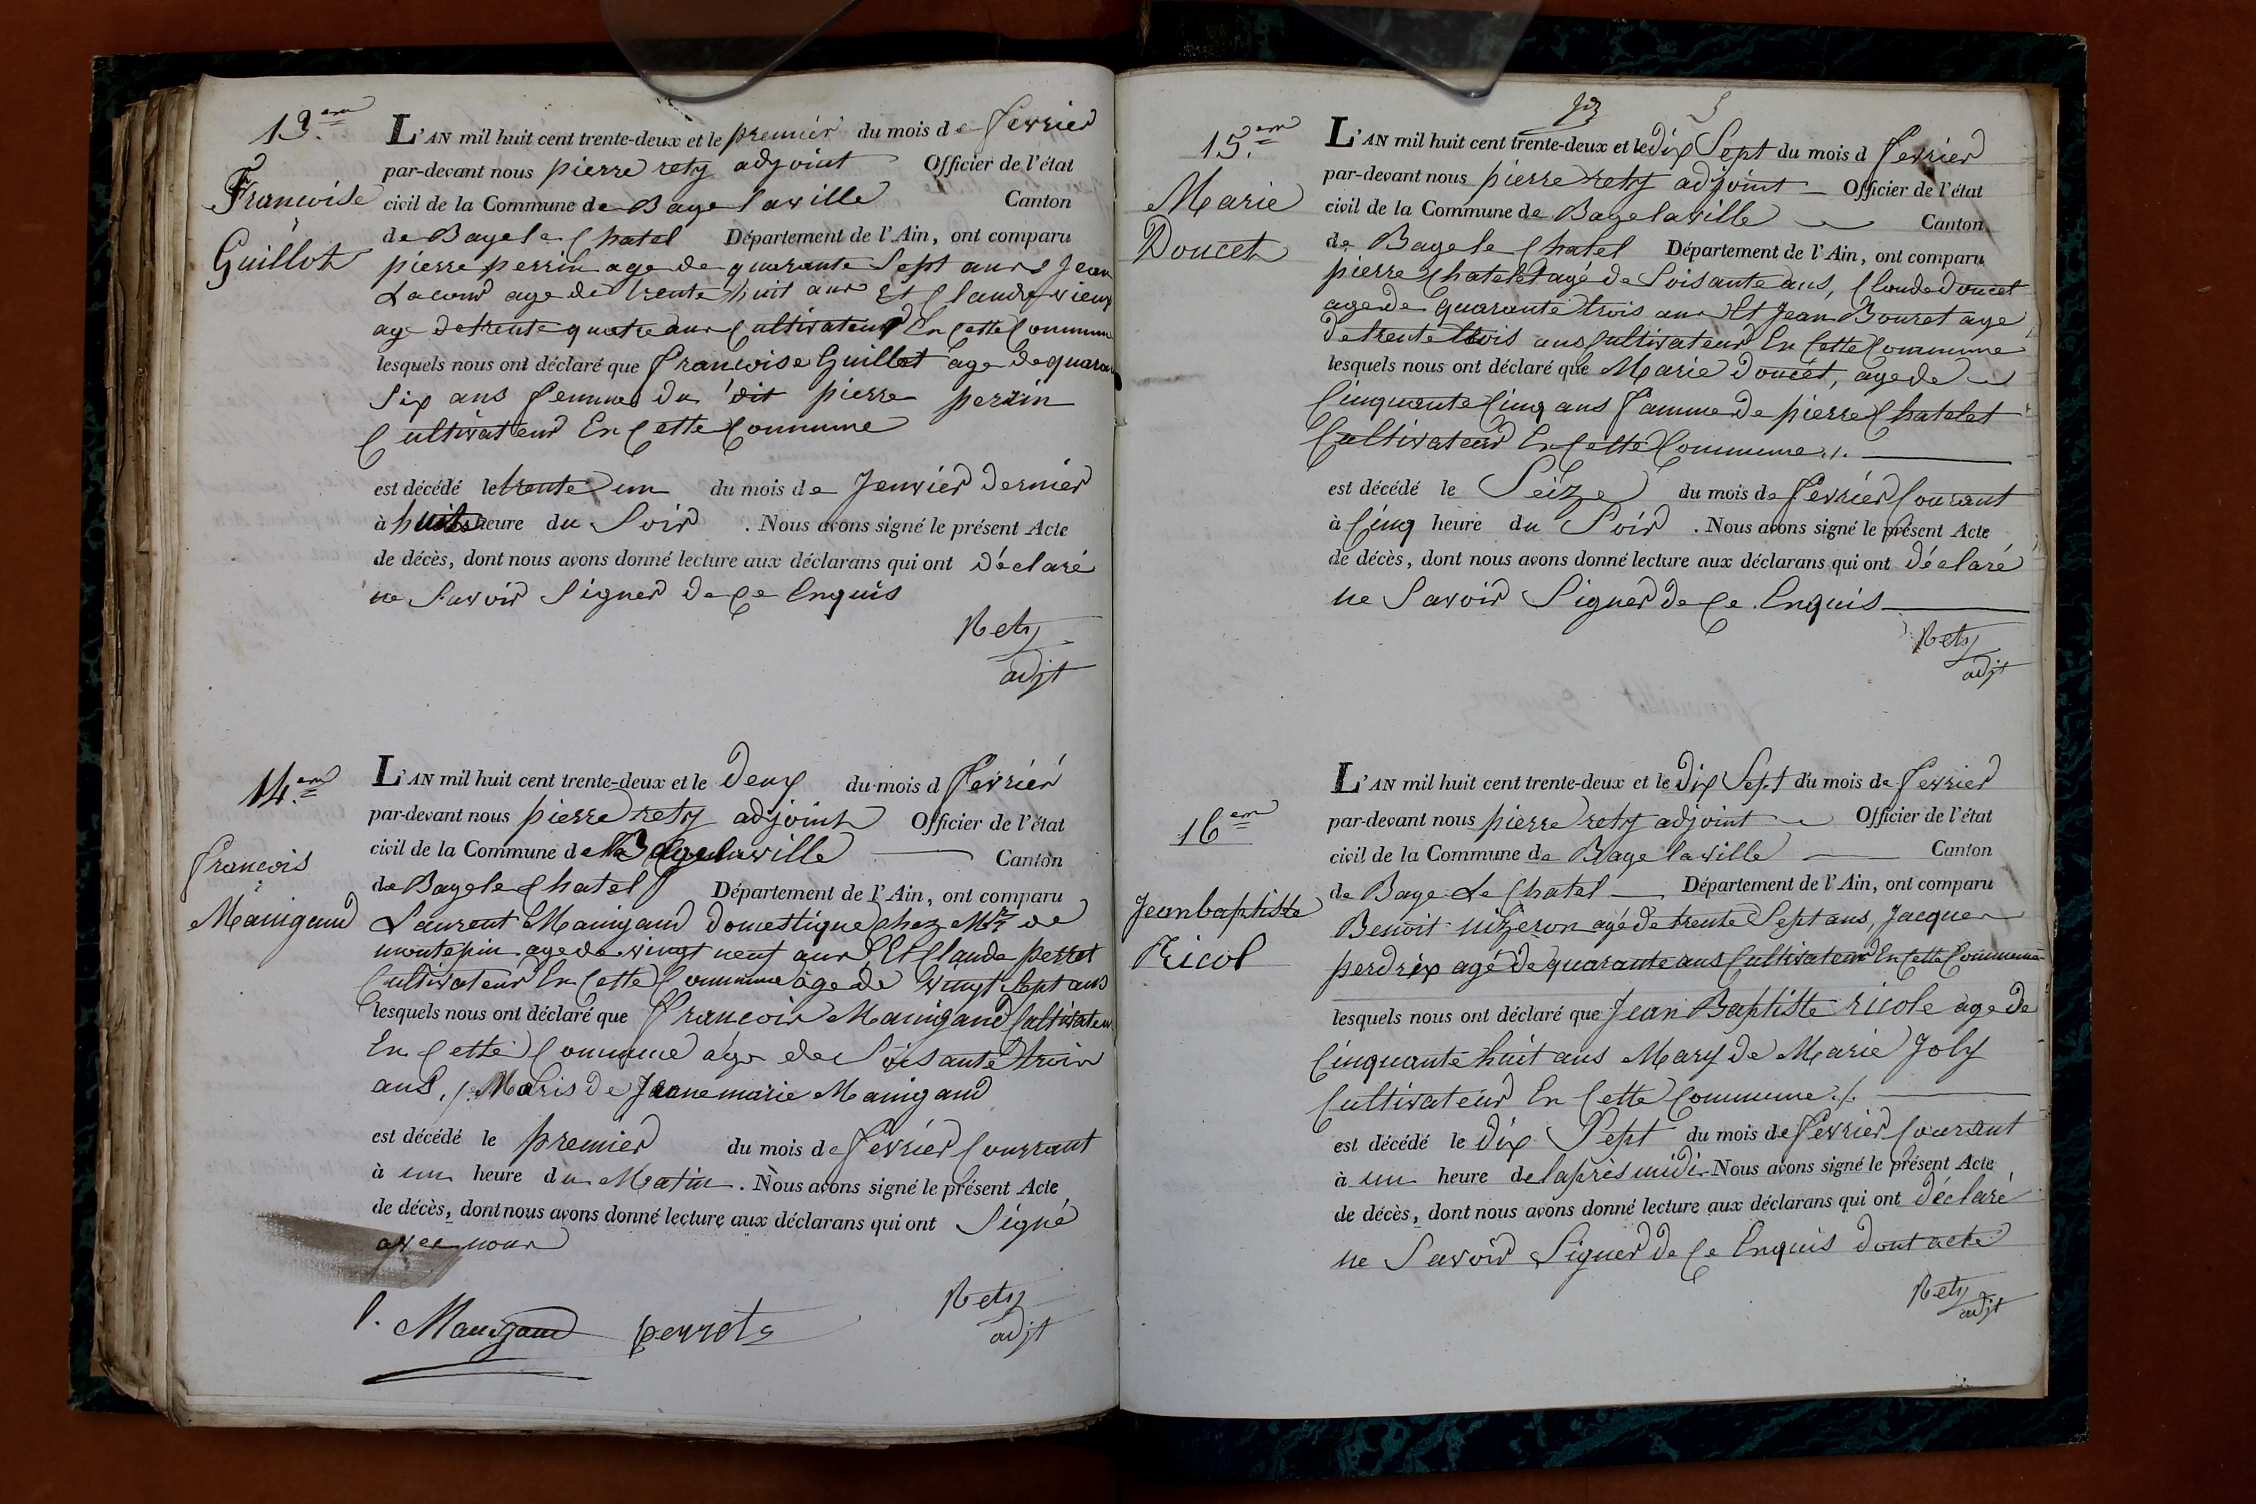 13.em
Francoise
Guillot
L'AN mil huit cent trente-deux et le premier du mois de fevrier
par-devant nous pierre rety adjoint Officier de l'état
civil de la Commune de Bage laville Canton
de Bage le Chatel Département de l'Ain, ont comparu
pierre perrin age de quarante Sept ans, Jean
Lacour age de trente huit ans Et Claude vieux
age de trente quatre ans Cultivateur En Cette Commune
lesquels nous ont déclaré que francoise Guillot age de quarante
Six ans femme du dit pierre perrin
Cultivateur En Cette Commune
est décédé le trente un du mois de Jenvier dernier
à huit heure du Soir . Nous avons signé le présent Acte
de décès, dont nous avons donné lecture aux déclarans qui ont déclaré
ne Savoir Signer de Ce Enquis
Rety
adjt
14.em
francois
Mainigand
L'AN mil huit cent trente-deux et le deux du mois d fevrier
par-devant nous pierre rety adjoint Officier de l'état
civil de la Commune de Bagelaville Canton
de Bage le Chatel Département de l'Ain, ont comparu
Laurent Mainigand domestique Chez Mr de
montepin age de vingt neuf ans, Et Claude perret
Cultivateur En Cette Commune âge de vingt Sept ans
lesquels nous ont déclaré que francois Mainigand Cultivateur
En Cette Commune âge de Soisante trois
ans, /. Maris de Jeanne marie Mainigand
est décédé le premier du mois de fevrier Courrant
à un heure du Matin . Nous avons signé le présent Acte
de décès, dont nous avons donné lecture aux déclarans qui ont Signé
avec nous
l. Mainigand perret
Rety
adjt
15.em
Marie
Doucet
L'AN mil huit cent trente-deux et le dix Sept du mois d fevrier
par-devant nous pierre rety adjoint Officier de l'état
civil de la Commune de Bage laville Canton
de Bage le Chatel Département de l'Ain, ont comparu
pierre Chatelet agé de Soisante ans, Cloude doucet
age de quarante trois ans Et Jean Bouret age
de trente trois ans Cultivateur En Cette Commune
lesquels nous ont déclaré que Marie doucet, age de
Cinquante Cinq ans famme de pierre Chatelet
Cultivateur En Cette Commune ./.
est décédé le Seize du mois de fevrier Courant
à Cinq heure du Soir . Nous avons signé le présent Acte
de décès, dont nous avons donné lecture aux déclarans qui ont déclaré
ne Savoir Signer de Ce Enquis
Rety
adjt
16em
Jeanbaptiste
Ricol
L'AN mil huit cent trente-deux et le dix Sept du mois de fevrier
par-devant nous pierre rety adjoint Officier de l'état
civil de la Commune de Bage laville Canton
de Bage Le Chatel Département de l'Ain, ont comparu
Benoit nizeron agé de trente Sept ans, Jacques
perdrix agé de quarante ans Cultivateur En Cette Commune
lesquels nous ont déclaré que Jean Baptiste ricole age de
Cinquante huit ans Mary de Marie Joly
Cultivateur En Cette Commune ./.
est décédé le dix Sept du mois de fevrier Courant
à un heure de laprès midi . Nous avons signé le présent Acte
de décès, dont nous avons donné lecture aux déclarans qui ont déclaré
ne Savoir Signer de Ce Enquis dont acte
Rety
adjt